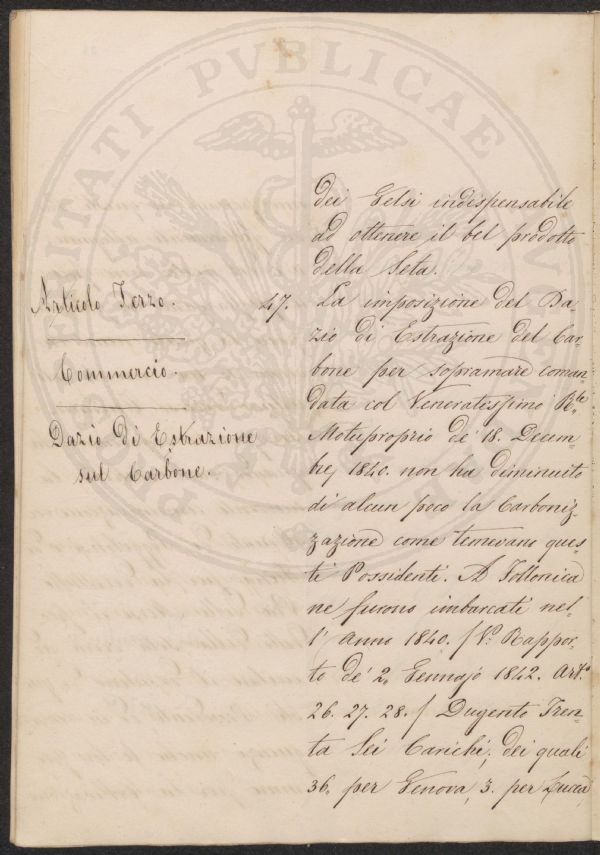 dei Gelsi indispensabile
ad ottenere il bel prodotto
della Seta.
Articolo Terzo.
Commercio.
Dazio di Estrazione
sul Carbone.
47. La imposizione del Da-
zio di Estrazione del Car-
bone per sopramare coman-
data col Veneratissimo Rle
Motuproprio de' 18. Decem-
bre 1840. non ha diminuito
di alcun poco la Carboniz-
zazione come temevano ques-
ti Possidenti. A Follonica
ne furono imbarcati nel-
l'anno 1840. /Vo. Rappor-
to de' 2. Gennajo 1842. Arto.
26. 27. 28./ Dugento Tren-
ta Sei Carichi, dei quali
36. per Genova, 3. per Lucca,